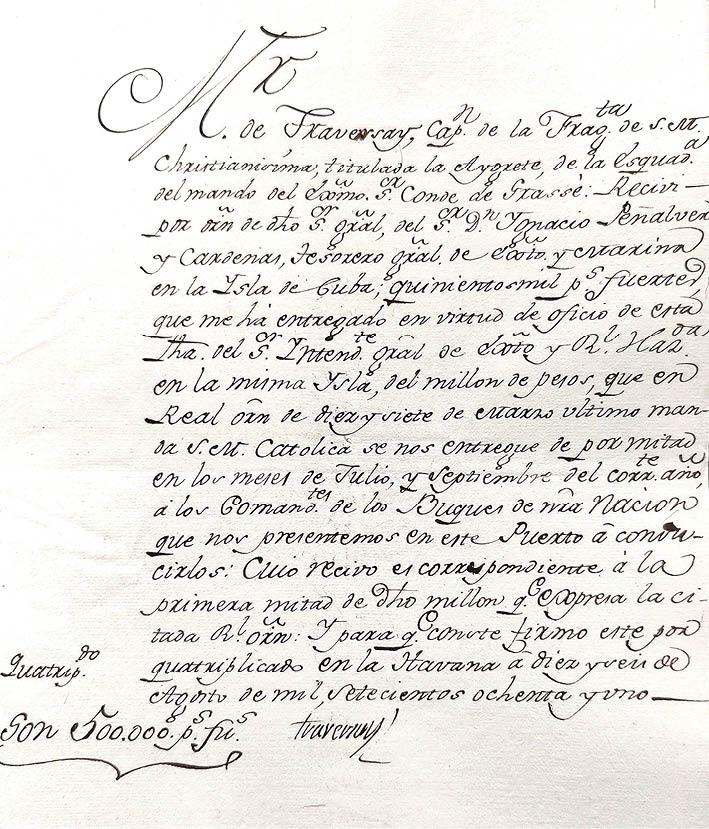 Mr.
de Traversay, Capn. de la Fragta. de S. M.
Christianisima, titulada la Aygrete, de la Esquada.
del mando del Exmo. Sor. Conde de Grasse: Recivi
por orn de dho Sor. gral, del Sor. Dn. Ygnacio Peñalver
y Cardenas, Tesorero gral. de Exto. y Marina
en la Ysla de Cuba, quinientos mil ps. fuertes,
que me há entregado en virtud de oficio de esta
fha. del Sor. Yntendte. gral de Exto y Rl. Hazda.
en la misma Ysla, del millon de pesos, que en
Real orn de diez y siete de Marzo ultimo man-
da S. M. Catolica se nos entregue de por mitad
en los meses de Julio, y Septiembre del corrte. año,
á los Comandtes. de los Buques de nra Nacion
que nos presentemos en este Puerto á condu-
cirlos: Cuio recivo es correspondiente á la
primera mitad de dho millon qe. expresa la ci-
tada Rl. orn: Y para qe. conste firmo este por
quatriplicado en la Havana á diez y seis de
Agosto de mil, setecientos ochenta y uno
Quatripdo.
Son 500.000. ps. fus.
Traversay